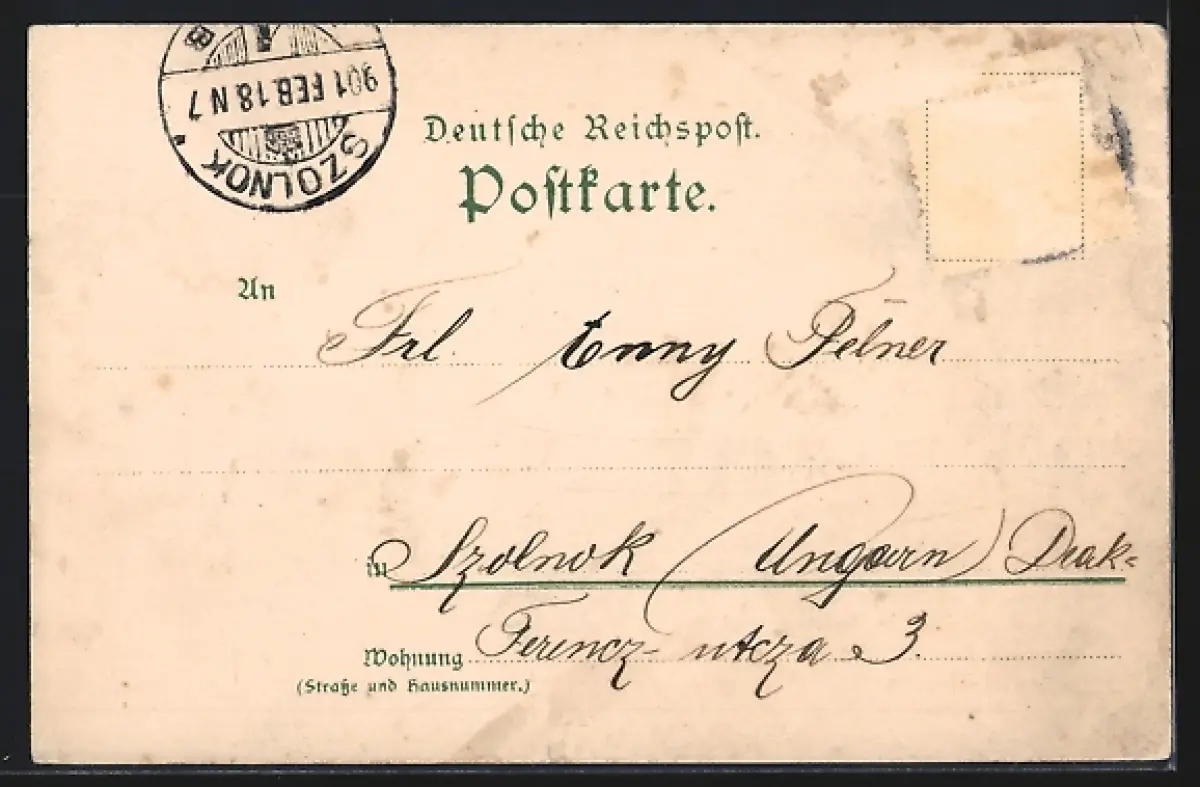 SZOLNOK
901 FEB. 18 N 7
B
Deutsche Reichspost.
Postkarte.
An
Frl. Enny Felner
in Szolnok (Ungarn) Deak-
Wohnung Ferencz-utcza 3.
(Straße und Hausnummer.)